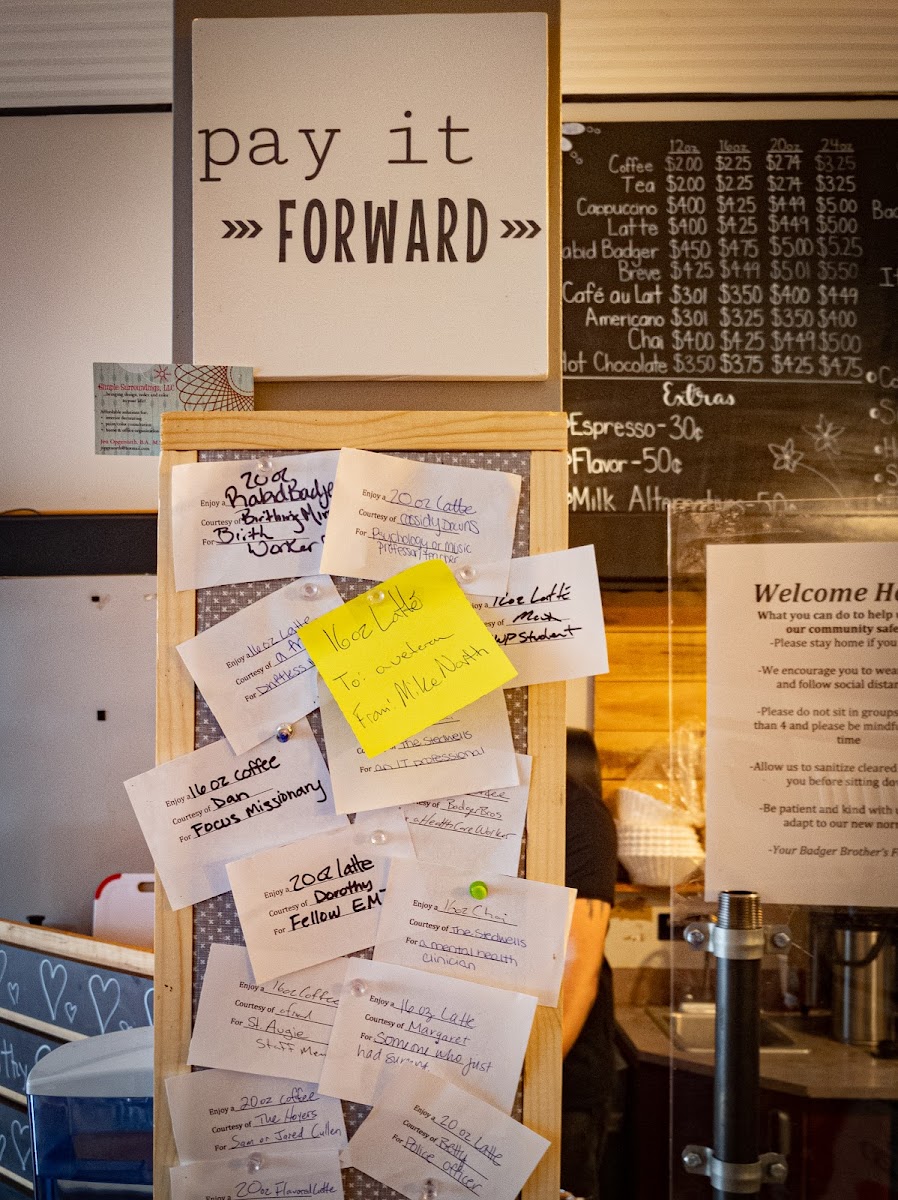 pay it
»» FORWARD »»
12oz 16oz 20oz 24oz
Coffee $2.00 $2.25 $2.74 $3.25
Tea $2.00 $2.25 $2.74 $3.25
Cappuccino $4.00 $4.25 $4.49 $5.00
Latte $4.00 $4.25 $4.49 $5.00
abid Badger $4.50 $4.75 $5.00 $5.25
Breve $4.25 $4.49 $5.01 $5.50
Café au Lait $3.01 $3.50 $4.00 $4.49
Americano $3.01 $3.25 $3.50 $4.00
Chai $4.00 $4.25 $4.49 $5.00
Hot Chocolate $3.50 $3.75 $4.25 $4.75
Extras
Espresso - 30¢
Flavor - 50¢
Milk Alternatives - 50
Simple Surroundings, LLC
Enjoy a 20oz
Rabid Badge
Courtesy of
For Birth
Worker
Enjoy a 20oz Latte
Courtesy of Cassidy Downs
For Psychology or Music
professor/teacher
Enjoy a 16oz Latte
Courtesy of a fr
For Driftless
16oz Latté
To: a veteran
From: Mike North
oy a 16oz Latté
sy of Mom
WP Student
The Stedwells
For an IT professional
Enjoy a 16oz coffee
Courtesy of Dan
For Focus Missionary
sy of Badger Bros
a Health Care Worker
Enjoy a 20oz latte
Courtesy of Dorothy
For Fellow EM
Enjoy a 16oz Chai
Courtesy of The Stedwells
For a mental health
clinician
Enjoy a 16oz Coffee
Courtesy of
For St. Augie
Staff Me
Enjoy a 16oz Latte
Courtesy of Margaret
For Someone who just
had
Enjoy a 20oz coffee
Courtesy of The Hoyers
For Sam or Jared Cullen
Enjoy a 20oz Latte
Courtesy of Betty
For Police officer
20oz Flavored Latte
Welcome Ho
What you can do to help
our community safe
-Please stay home if you
-We encourage you to wea
and follow social distan
-Please do not sit in groups
than 4 and please be mindfu
time
-Allow us to sanitize cleared
you before sitting do
-Be patient and kind with
adapt to our new nor
-Your Badger Brother's F